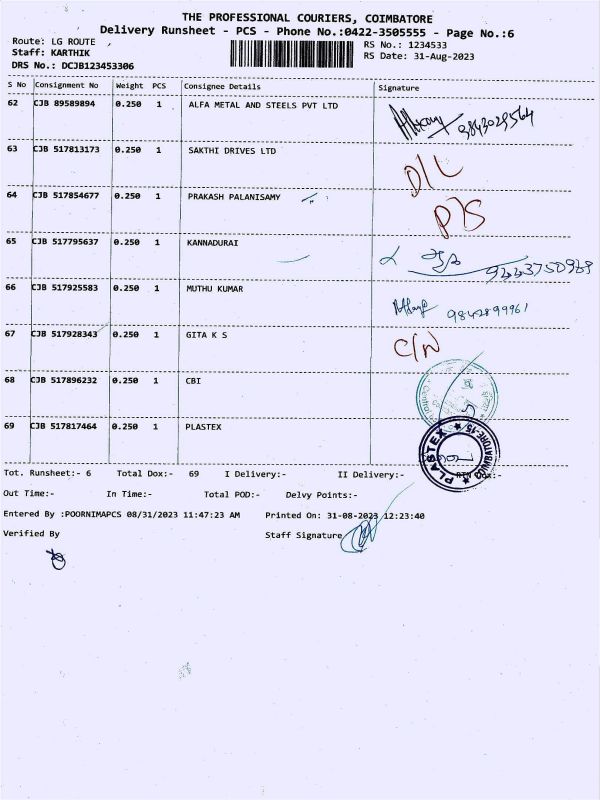 THE PROFESSIONAL COURIERS, COIMBATORE
Delivery Runsheet - PCS - Phone No.:0422-3505555 - Page No.:6
Route: LG ROUTE
RS No.: 1234533
Staff: KARTHIK
RS Date: 31-Aug-2023
DRS No.: DCJB123453306
S No Consignment No Weight PCS Consignee Details Signature
62 CJB 89589894 0.250 1 ALFA METAL AND STEELS PVT LTD 9843029564
63 CJB 517813173 0.250 1 SAKTHI DRIVES LTD D/L
64 CJB 517854677 0.250 1 PRAKASH PALANISAMY P/S
65 CJB 517795637 0.250 1 KANNADURAI
66 CJB 517925583 0.250 1 MUTHU KUMAR 9842899961
67 CJB 517928343 0.250 1 GITA K S C/N
68 CJB 517896232 0.250 1 CBI
69 CJB 517817464 0.250 1 PLASTEX
PLASTEX
Tot. Runsheet:- 6 Total Dox:- 69 I Delivery:- II Delivery:-
Out Time:- In Time:- Total POD:- Delvy Points:-
Entered By :POORNIMAPCS 08/31/2023 11:47:23 AM Printed On: 31-08-2023 12:23:40
Verified By Staff Signature